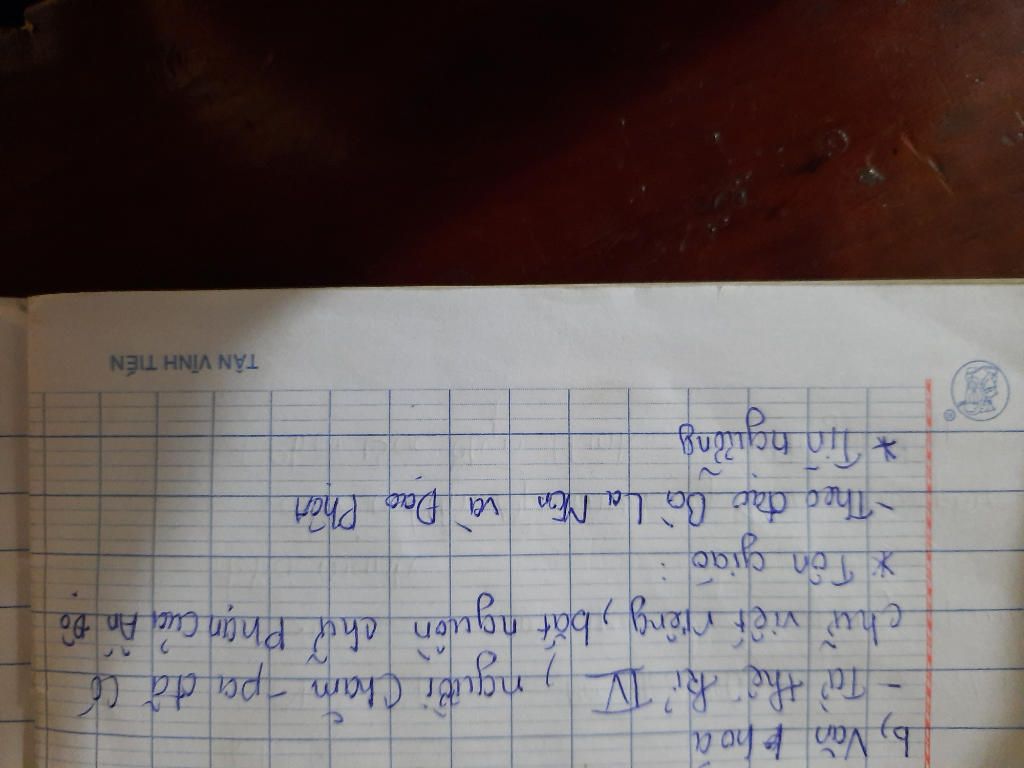 b, Văn hoá
- Từ thế kỉ IV, người Chăm-pa đã có
chữ viết riêng, bắt nguồn chữ Phạn của Ấn Độ
* Tôn giáo:
- Theo đạo Bà La Môn và Đạo Phận
* Tín ngưỡng
TÂN VĨNH TIẾN
®